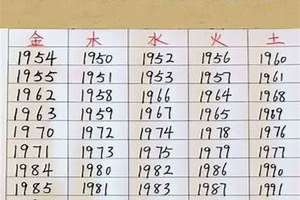 金 木 水 火 土
1954 1950 1952 1956 1960
1955 1951 1953 1957 1961
1962 1958 1966 1964 1968
1963 1959 1967 1965 1969
1970 1972 1974 1978 1976
1971 1973 1975 1979 1977
1984 1980 1982 1986 1990
1985 1981 1983 1987 1991